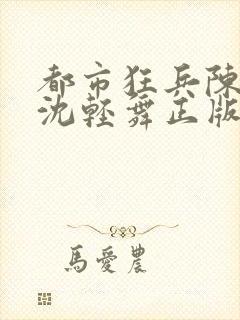 都市狂兵陳
沈輕舞正版
馬愛農